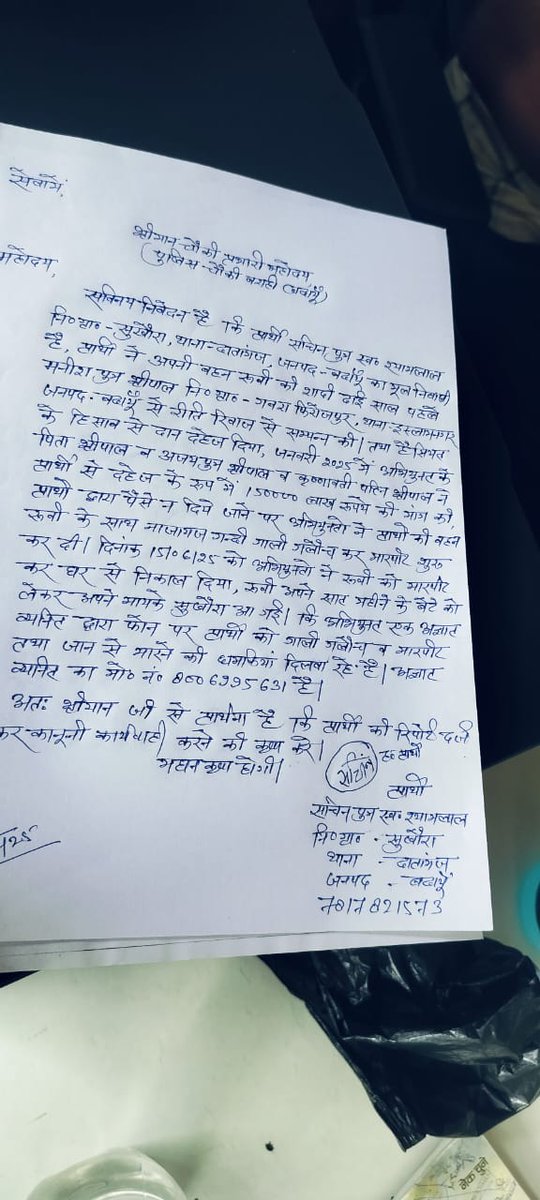 सेवामें,
श्रीमान चौकी प्रभारी महोदय
(पुलिस चौकी बराही (बदायूँ)
महोदय,
सविनय निवेदन है कि प्रार्थी सचिन पुत्र स्व० श्यामलाल
नि०ग्रा०- सुखौरा, थाना-दातागंज, जनपद-बदायूँ का मूल निवासी
है, प्रार्थी ने अपनी बहन रूबी की शादी ढाई साल पहले
मनीश पुत्र श्रीपाल नि०ग्रा०- फिरोजपुर, थाना इस्लामनगर
जनपद- बदायूँ से रीति रिवाज से सम्पन्न की। तथा हैसियत
के हिसाब से दान दहेज दिया, जनवरी 2025 में अभियुक्त के
पिता श्रीपाल व अजयपुत्र श्रीपाल व कृष्णावती पत्नि श्रीपाल ने
प्रार्थी से दहेज के रूप में 150000 लाख रूपये की मांग की,
प्रार्थी द्वारा पैसे न दिये जाने पर अभियुक्तो ने प्रार्थी की बहन
रूबी के साथ नाजायज गन्दी गाली गलौच कर मारपीट शुरू
कर दी। दिनांक 15/06/25 को अभियुक्तो ने रूबी को मारपीट
कर घर से निकाल दिया, रूबी अपने सात महीने के बेटे को
लेकर अपने मायके सुखौरा आ गई। कि अभियुक्त एक अज्ञात
व्यक्ति द्वारा फोन पर प्रार्थी को गाली गलौच व मारपीट
तथा जान से मारने की धमकियां दिलवा रहे है। अज्ञात
व्यक्ति का मो० नं० 8006995631 है।
अतः श्रीमान जी से प्रार्थना है कि प्रार्थी की रिपोर्ट दर्ज
कर कानूनी कार्यवाही करने की कृपा करें।
महान कृपा होगी।
सचिन
ह० प्रार्थी
प्रार्थी
सचिन पुत्र स्व० श्यामलाल
नि०ग्रा० - सुखौरा
थाना - दातागंज
जनपद - बदायूँ
7817821573